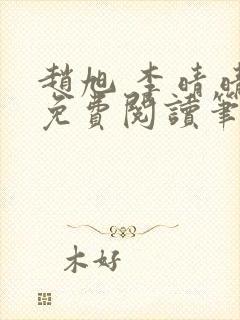 趙旭 李晴晴
免費閱讀筆
木好